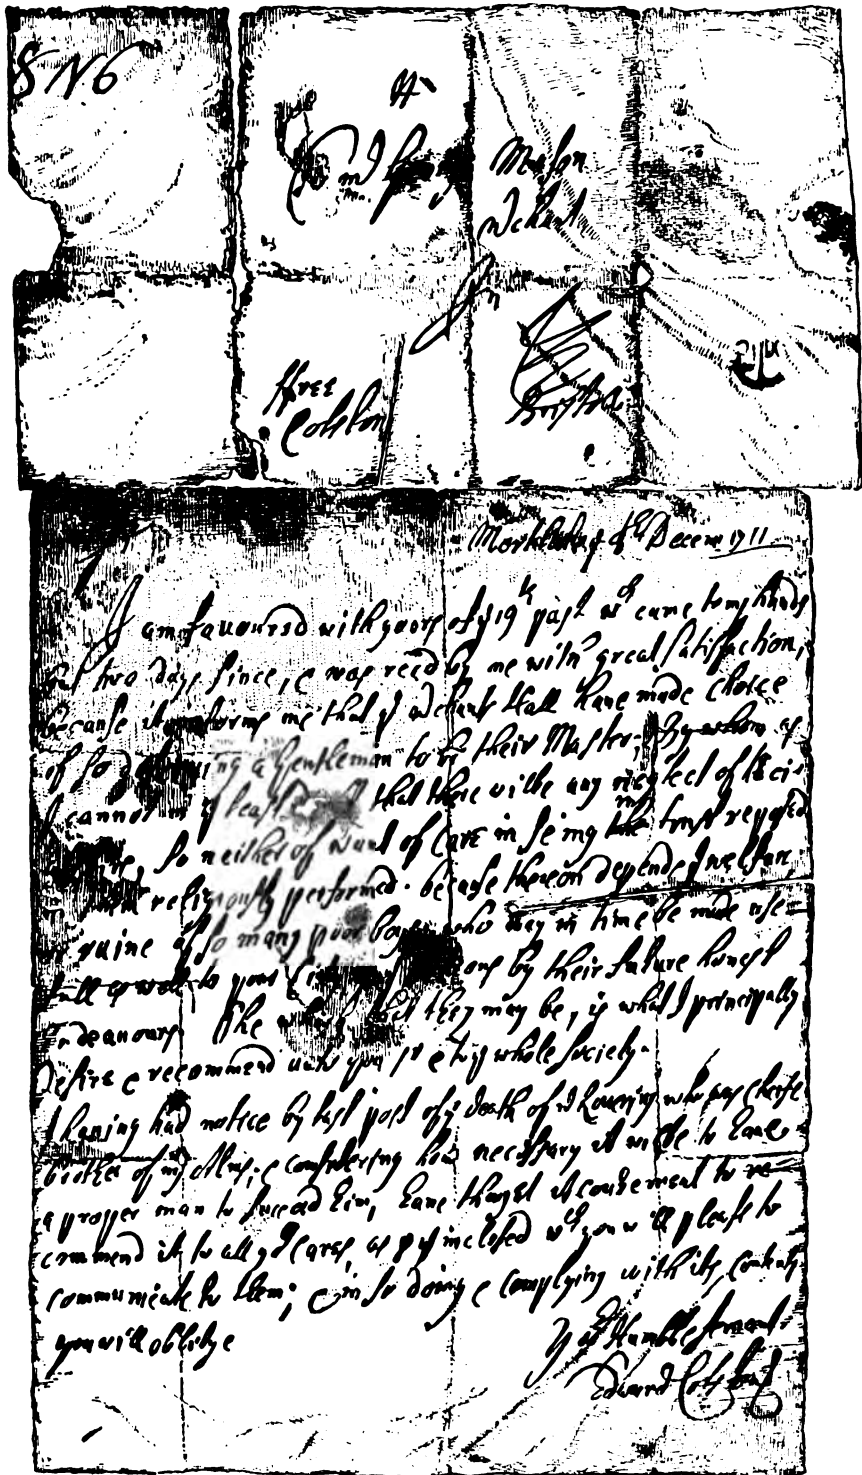 SN6
To
Mason
Mchant
In
Bristoll
ffree
Colston
Mortlake 4th Decem 1711
I am favoured with yours of ye 19th past wch came to my hands
but two days since, & was recd by me with great satisfaction,
because it informs me that ye Mchants Hall have made choice
of so a gentleman to be their Master; by whom as
I cannot in ye least that there wilbe any neglect of
so neither of want of care in seing the trust reposed
religiously performed. because thereon depends ye welfare
or ruine of so many poor boys who may in time be made use
full as well to your by their future honest
Endeavours. The which that they may be, is what I principally
desire & recommend unto you Sr & ye whole society.
I having had notice by last post of ye death of who was cheife
brother of my Alms; & considering how necessary it wilbe to have
a propper man to succeed him, have thought it convenient to re
commend it to all yor cares, as pr ye inclosed wch you will please to
communicate to them; & in so doing & complying with its contents
you will oblidge
Yor Humble servant
Edward Colston